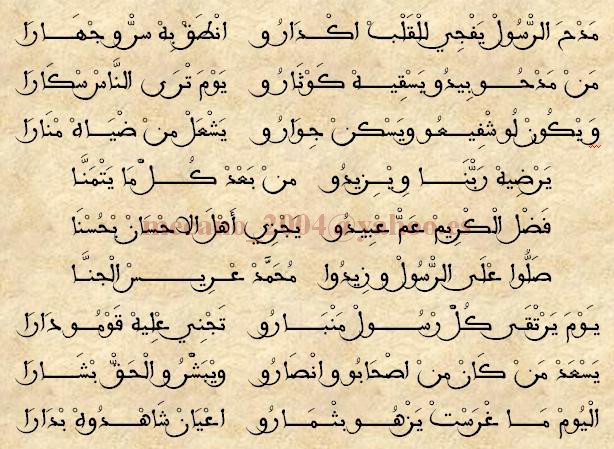 مَدْحَ الرَّسُولْ يَفْجِي لَلْقَلْبْ اكْدَارُو انْطَقْ بِهْ سرّْ وجْهَارَا
مَنْ مَدْحُو بِيدُو يَسْقِيهْ كَوْثَارُو يَوْمَ تْرَى النَّاسْ سْكَارَا
وَيْكُونْ لُو شْفِيعُو ويَسْكَنْ جِوَارُو يَشْعَلْ منْ ضْيَاهْ مْنَارَا
يَرْضِيهْ رَبّْنَا ويْزِيدُو منْ بَعْدْ كُلّْ مَا يَتْمَنَّا
فَضْل الْكْرِيمْ عَمّْ عبِيدُو يَجْزِي أَهْلَ الاحْسَانْ بْحُسْنَا
صَلُّوا عْلَى الرَّسُولْ وزِيدُوا مُحَمَّدْ عْرِيسْ الْجنَّا
يَوْمَ يَرْتقَى كُلّْ رَسُولْ مَنْبَارُو تَجْنِي عْلِيهْ قَوْمُو دَارَا
يَسْعَدْ مَنْ كَانْ منْ اصْحَابُو وانْصَارُو ويْبَشّْرُو الْحَقّْ بْشَارَا
الْيُومْ مَا غْرَسْتْ يَزْهُو بثْمَارُو اعْيَانْ شَاهْدُوهْ بْدَارَا